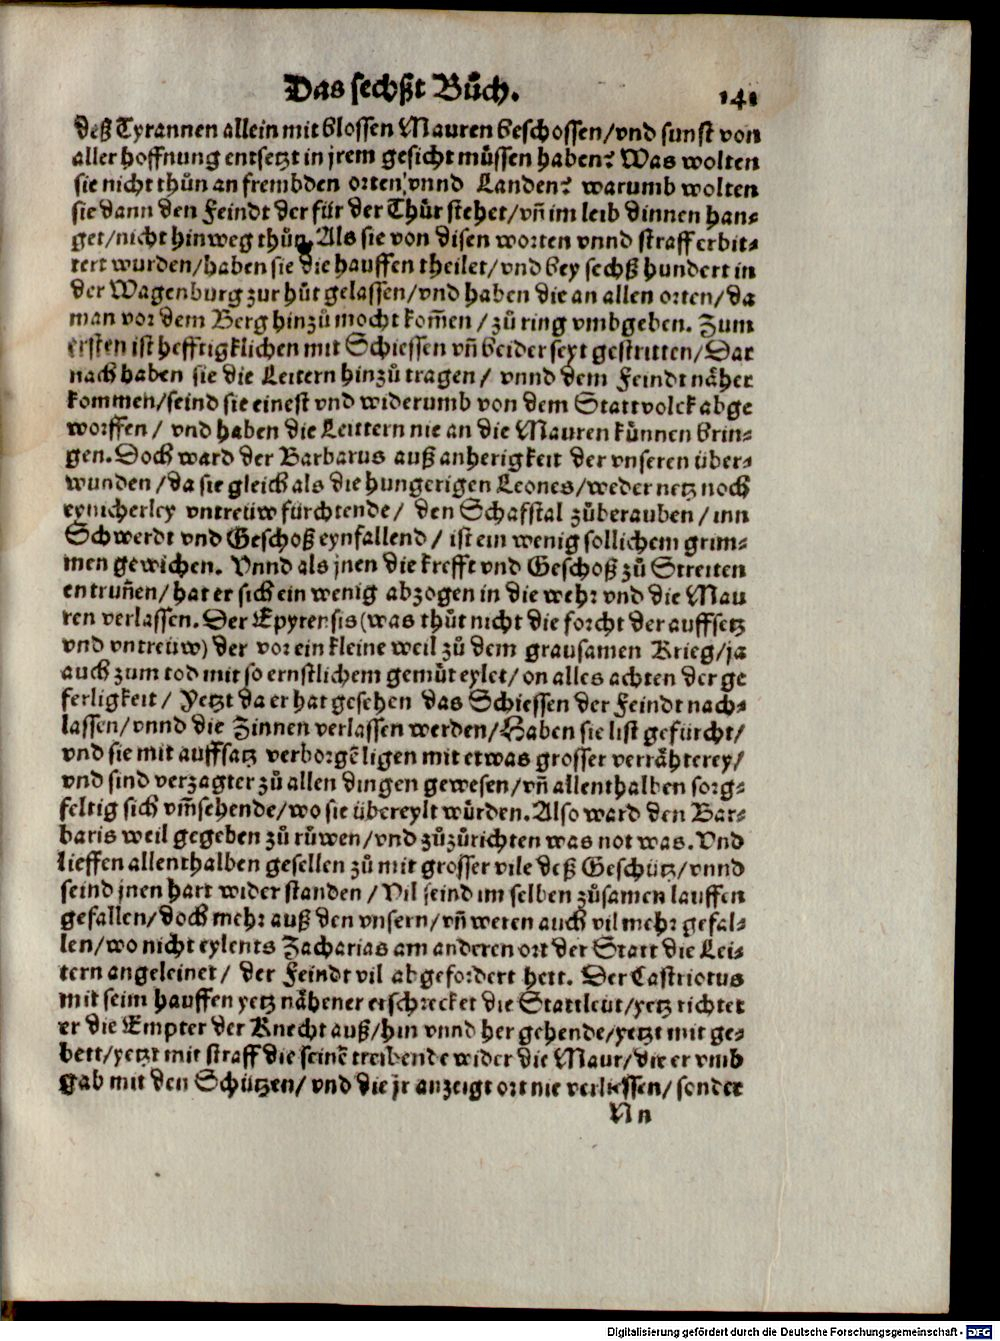 Das sechßt Bůch. 141
deß Tyrannen allein mit blossen Mauren beschossen/vnd sunst von
aller hoffnung entsetzt in jrem gesicht müssen haben? Was wolten
sie nicht thůn an frembden orten/vnnd Landen? warumb wolten
sie dann den Feindt der für der Thůr stehet/vñ im leib dinnen han⸗
get/nicht hinweg thůn. Als sie von disen worten vnnd straff erbit⸗
tert wurden/haben sie die hauffen theilet/vnd bey sechß hundert in
der Wagenburg zur hůt gelassen/vnd haben die an allen orten/da
man vor dem Berg hinzů mocht kom̃en/zů ring vmbgeben. Zum
ersten ist hefftigklichen mit Schiessen vñ beider seyt gestritten/Dar
nach haben sie die Leitern hinzů tragen/ vnnd dem Feindt näher
kommen/seind sie einest vnd widerumb von dem Stattvolck abge
worffen/ vnd haben die Leittern nie an die Mauren künnen brin⸗
gen. Doch ward der Barbarus auß anherigkeit der vnseren über⸗
wunden/da sie gleich als die hungerigen Leones/weder netz noch
eynicherley vntreüw fürchtende/ den Schafstal zůberauben/inn
Schwerdt vnd Geschoß eynfallend/ ist ein wenig sollichem grim⸗
men gewichen. Vnnd als jnen die krefft vnd Geschoß zů Streiten
entruñen/hat er sich ein wenig abzogen in die wehr vnd die Mau
ren verlassen. Der Epyrensis(was thůt nicht die forcht der auffsetz
vnd vntreüw) der vor ein kleine weil zů dem grausamen Krieg/ja
auch zum tod mit so ernstlichem gemůt eylet/on alles achten der ge
ferligkeit/ Yetzt da er hat gesehen das Schiessen der Feindt nach⸗
lassen/vnnd die Zinnen verlassen werden/Haben sie list gefürcht/
vnd sie mit auffsatz verborgẽ ligen mit etwas grosser verrähterey/
vnd sind verzagter zů allen dingen gewesen/vñ allenthalben sorg⸗
feltig sich vm̃sehende/wo sie übereylt würden. Also ward den Bar⸗
baris weil gegeben zů růwen/vnd zůzůrichten was not was. Vnd
lieffen allenthalben gesellen zů mit grosser vile deß Geschütz/vnnd
seind jnen hart widerstanden/Vil seind im selben zůsamen lauffen
gefallen/doch mehr auß den vnsern/vñ weren auch vil mehr gefal⸗
len/wo nicht eylents Zacharias am anderen ort der Statt die Lei⸗
tern angeleinet/ der Feindt vil abgefordert hett. Der Castriotus
mit seim hauffen yetz nähener erschrecket die Stattleut/yetz richtet
er die Empter der Knecht auß/hin vnnd her gehende/yetzt mit ge⸗
bett/yetzt mit straff die seinẽ treibende wider die Maur/die er vmb
gab mit den Schützen/ vnd die jr anzeigt ort nie verliessen/sonder
Nn
Digitalisierung gefördert durch die Deutsche Forschungsgemeinschaft - DFG